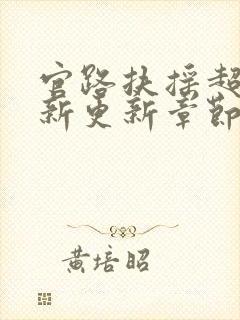 官路扶摇超
新更新章节
黄培昭